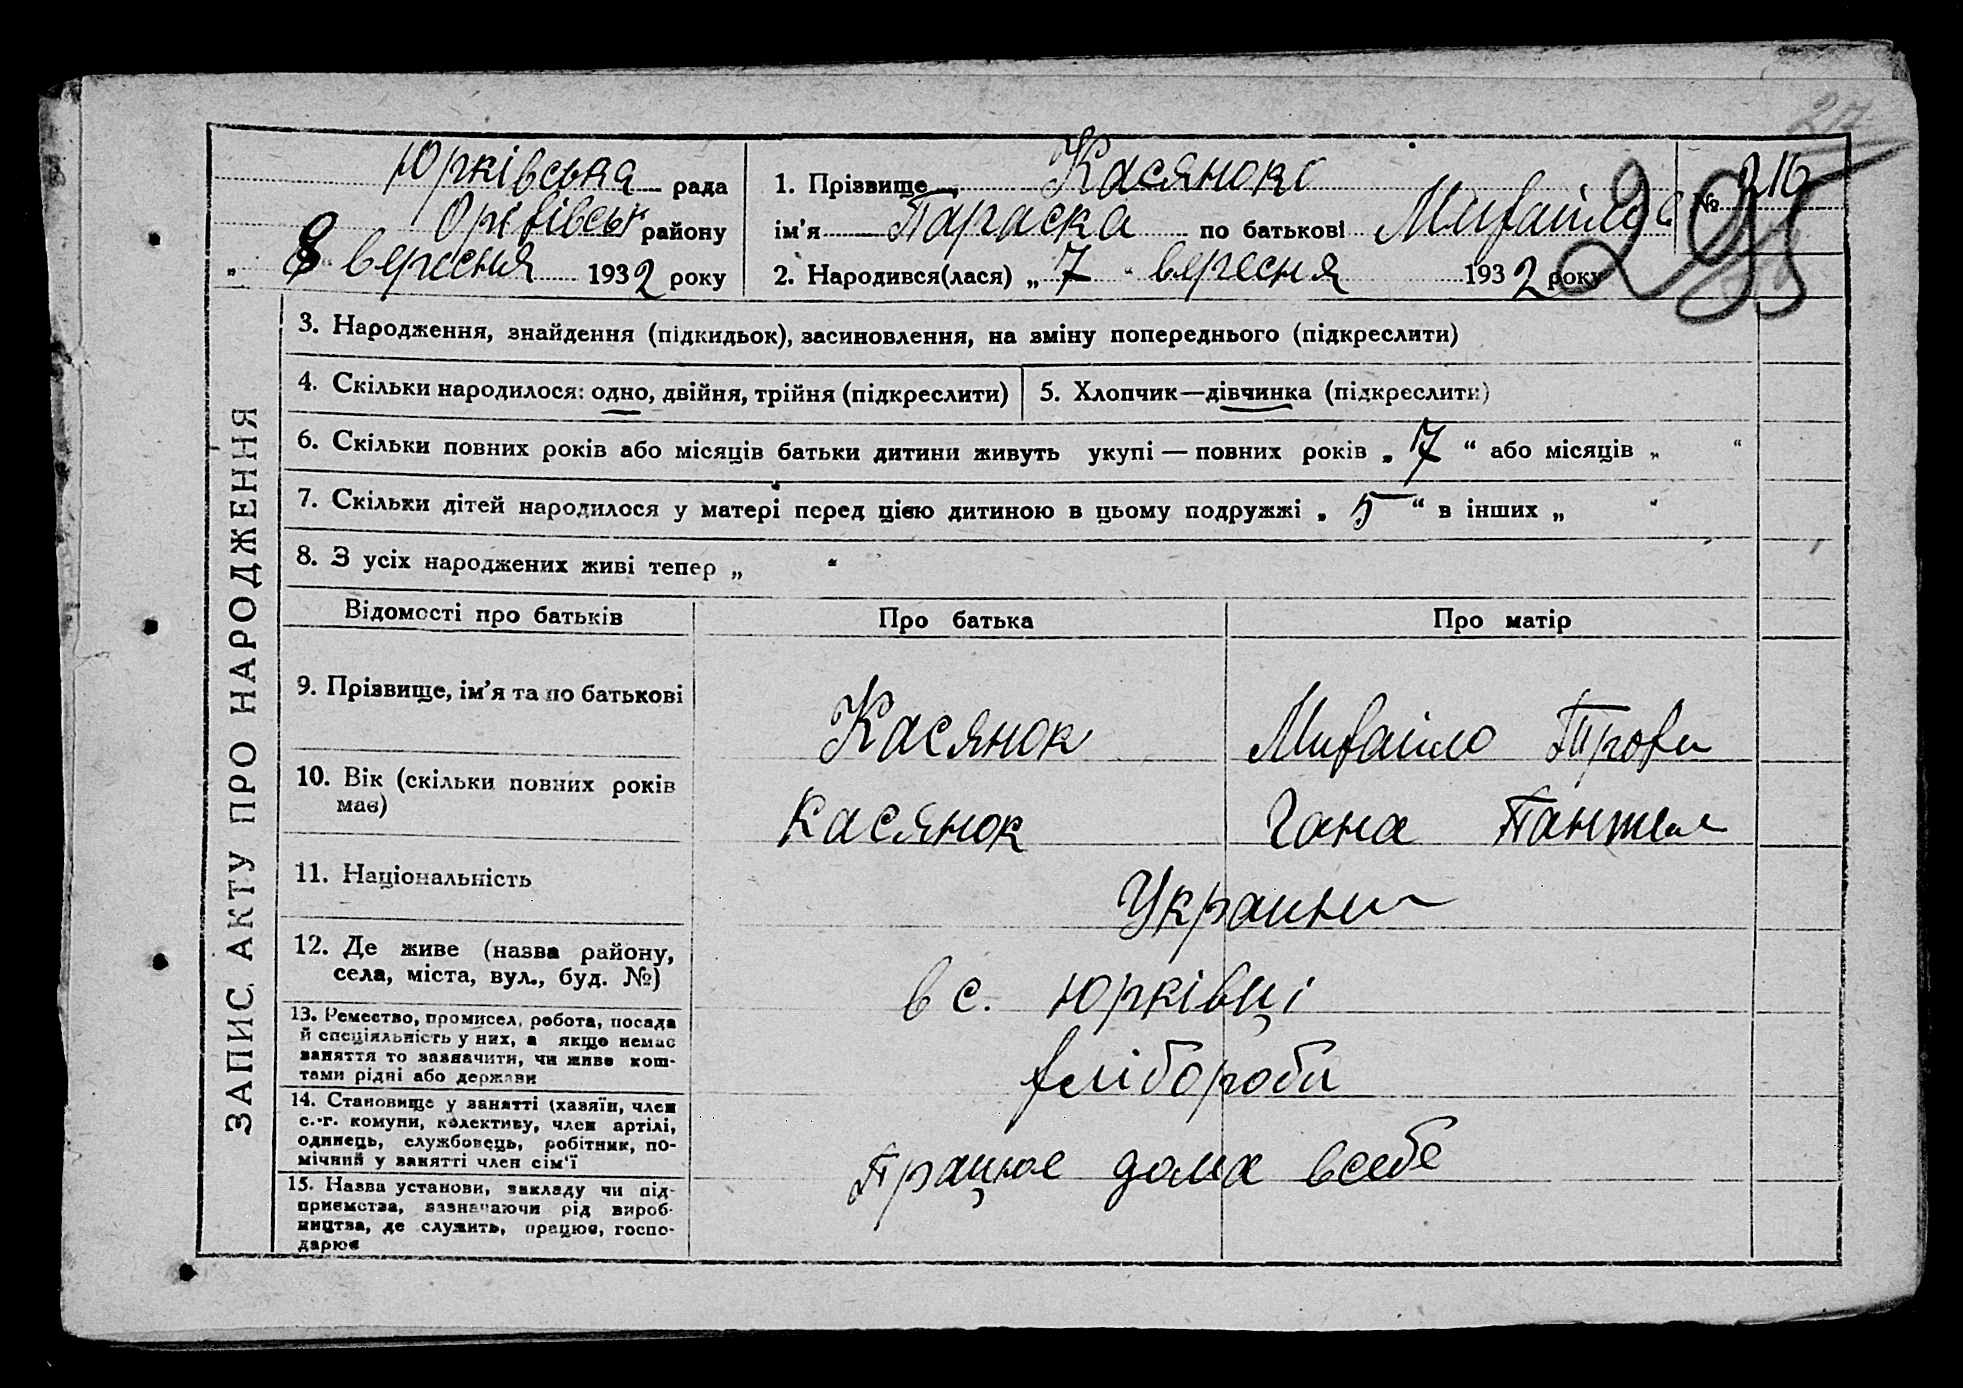 27
Юрківська рада
Оріхівськ району
„ 8 вересня 1932 року
1. Прізвище Касянюк
№ 216
ім’я Параска по батькові Михайлов
295
2. Народився(лася) „ 7 “ вересня 1932 року
ЗАПИС АКТУ ПРО НАРОДЖЕННЯ
3. Народження, знайдення (підкидьок), засиновлення, на зміну попереднього (підкреслити)
4. Скільки народилося: одно, двійня, трійня (підкреслити)
5. Хлопчик—дівчинка (підкреслити)
6. Скільки повних років або місяців батьки дитини живуть укупі — повних років „ 7 “ або місяців „ “
7. Скільки дітей народилося у матері перед цією дитиною в цьому подружжі „ 5 “ в інших „ “
8. З усіх народжених живі тепер „ “
Відомості про батьків
Про батька
Про матір
9. Прізвище, ім’я та по батькові
Касянюк Михайло Трохи
10. Вік (скільки повних років
має)
Касянюк Гана Пантел
11. Національність
Украини
12. Де живе (назва району,
села, міста, вул., буд. №)
в с. Юрківці
13. Ремество, промисел, робота, посада
й спеціяльність у них, а якщо немає
заняття то зазначити, чи живе кош-
тами рідні або держави
хлібороби
14. Становище у занятті (хазяїн, член
с.-г. комуни, колективу, член артілі,
одинець, службовець, робітник, по-
мічний у занятті член сім’ї
Працює дома всебе
15. Назва установи, закладу чи під-
приємства, зазначаючи рід вироб-
ництва, де служить, працює, госпо-
дарює